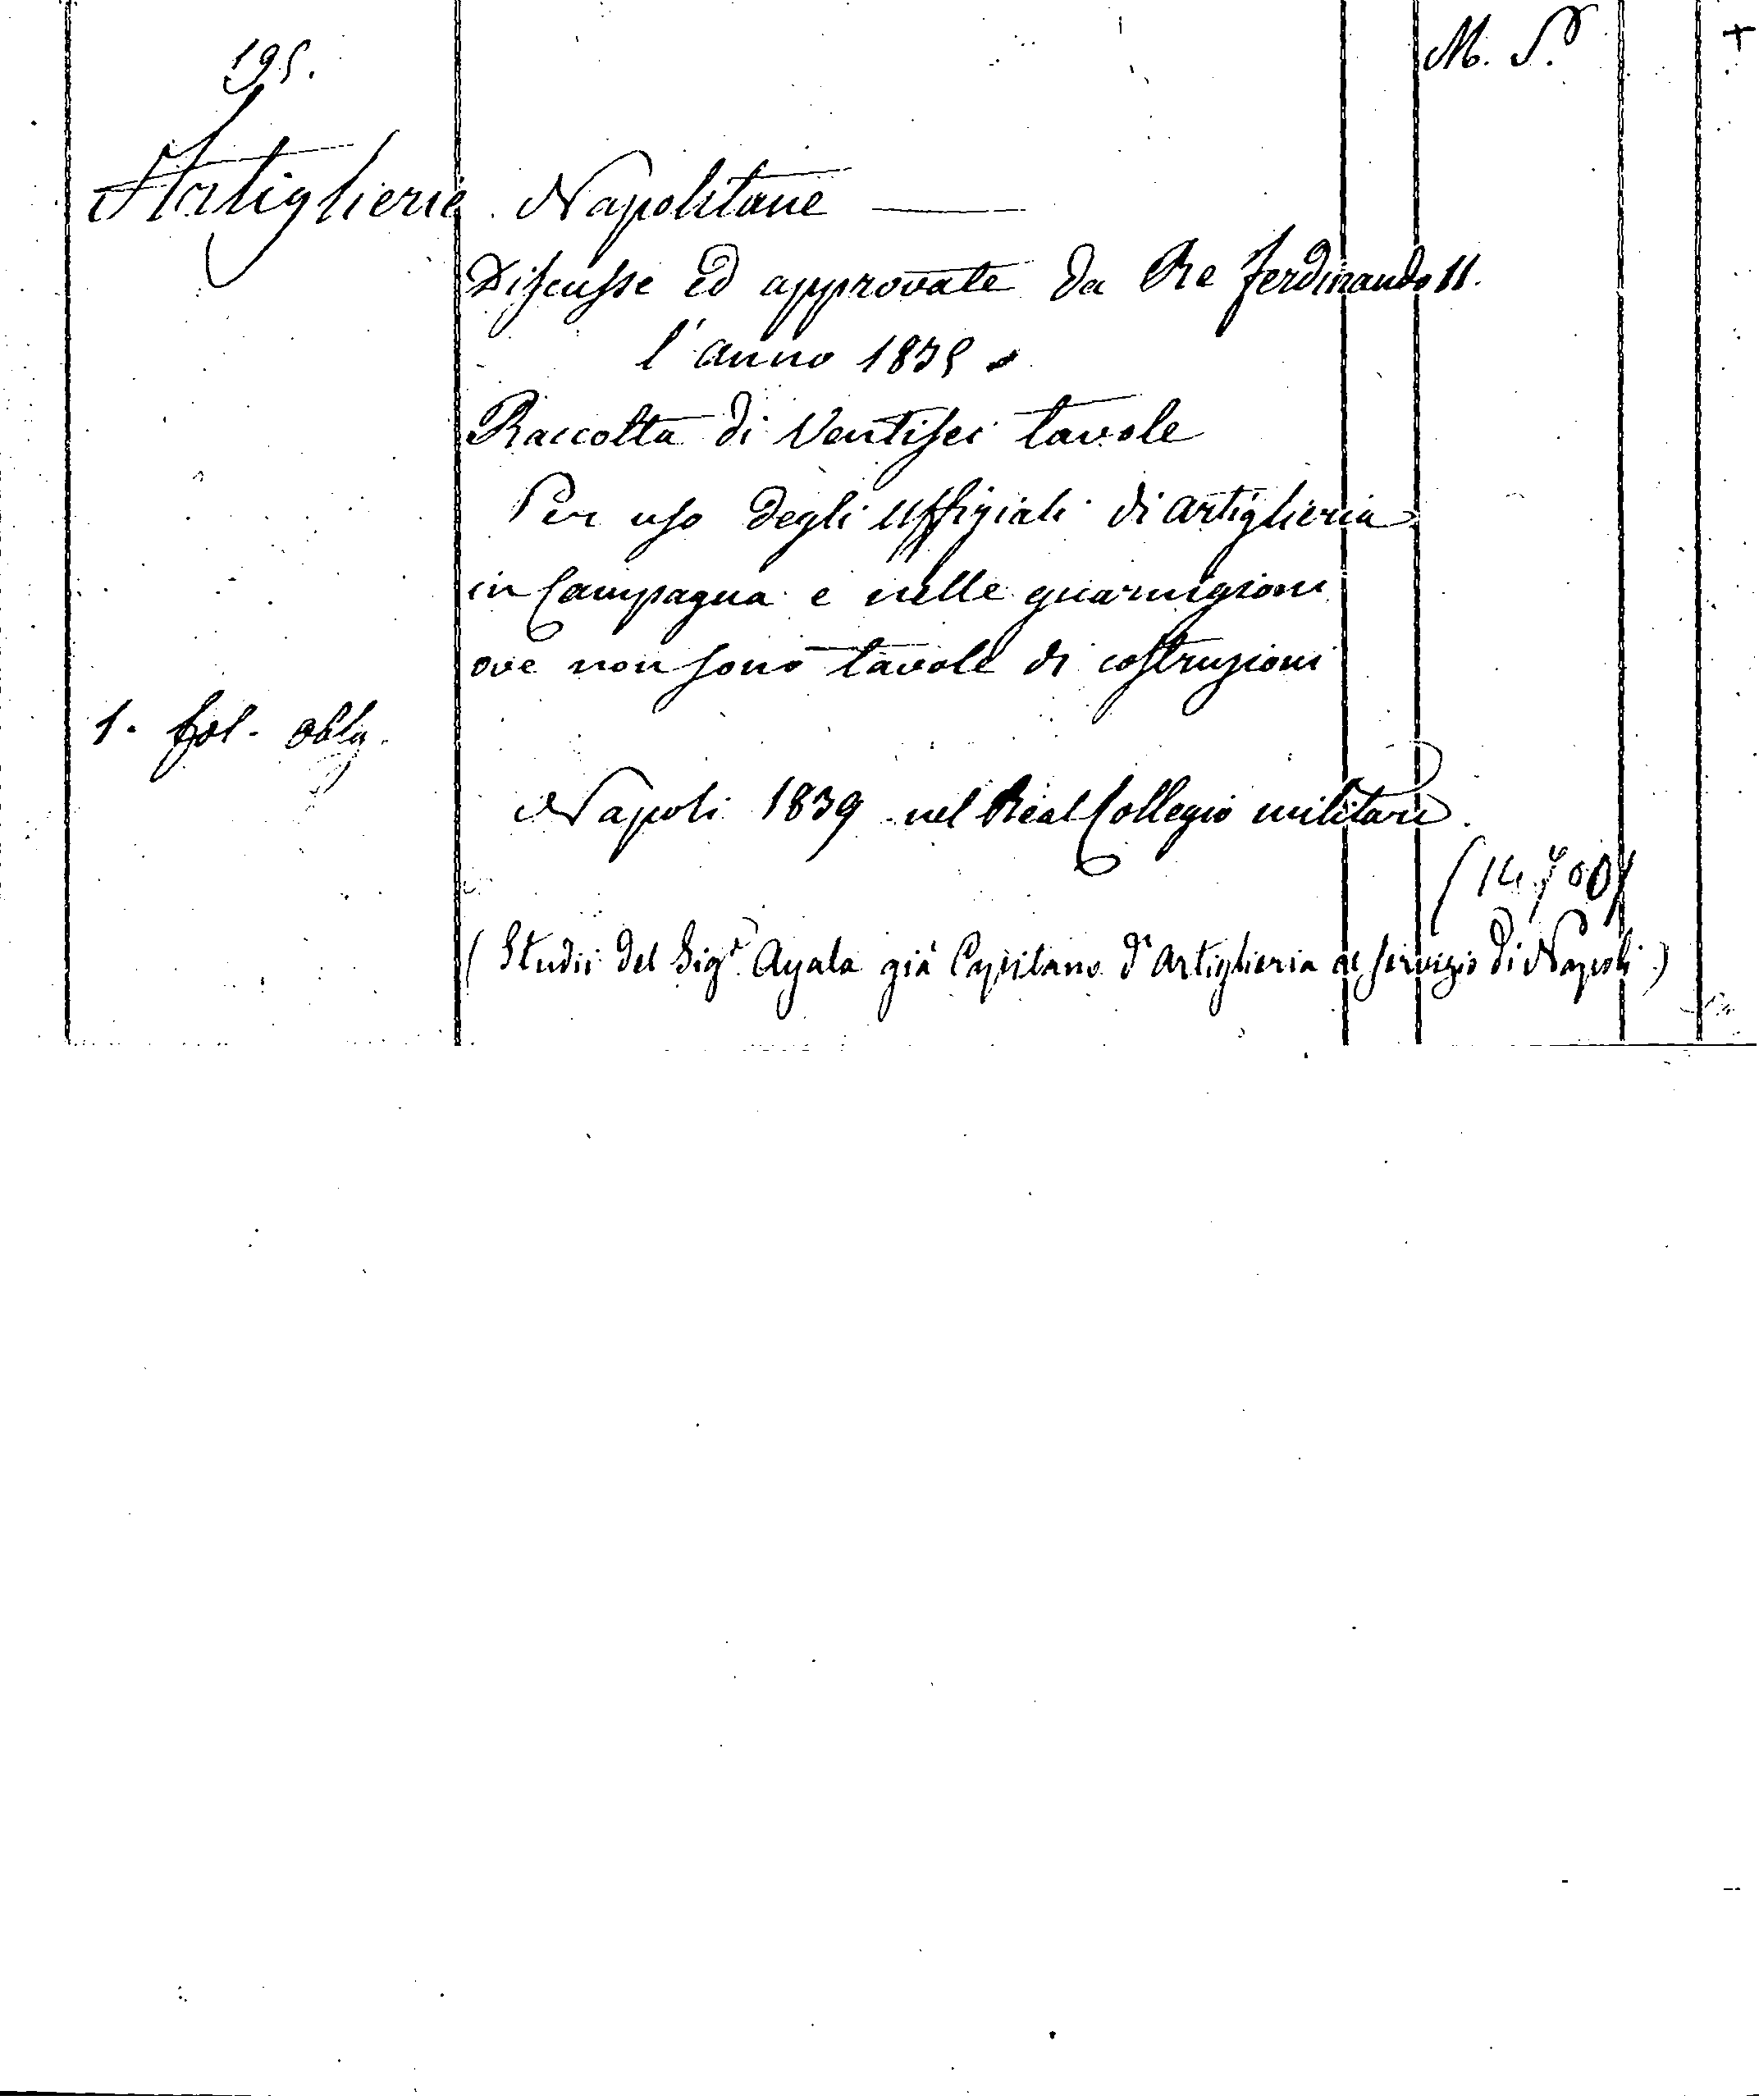 195.
M. S.
+
Artiglierie Napolitane —
Discusse ed approvate da Re Ferdinando II.
l'anno 1835
Raccolta di Ventisei tavole
Per uso degli Uffiziali di artiglieria
in Campagna e nelle guarnigioni
ove non sono tavole di costruzioni
1. fol. oblg.
Napoli 1839 nel Real Collegio militare.
(14,700)
(Studii del Sigr. Ayala già Capitano d'Artiglieria al servizio di Napoli)